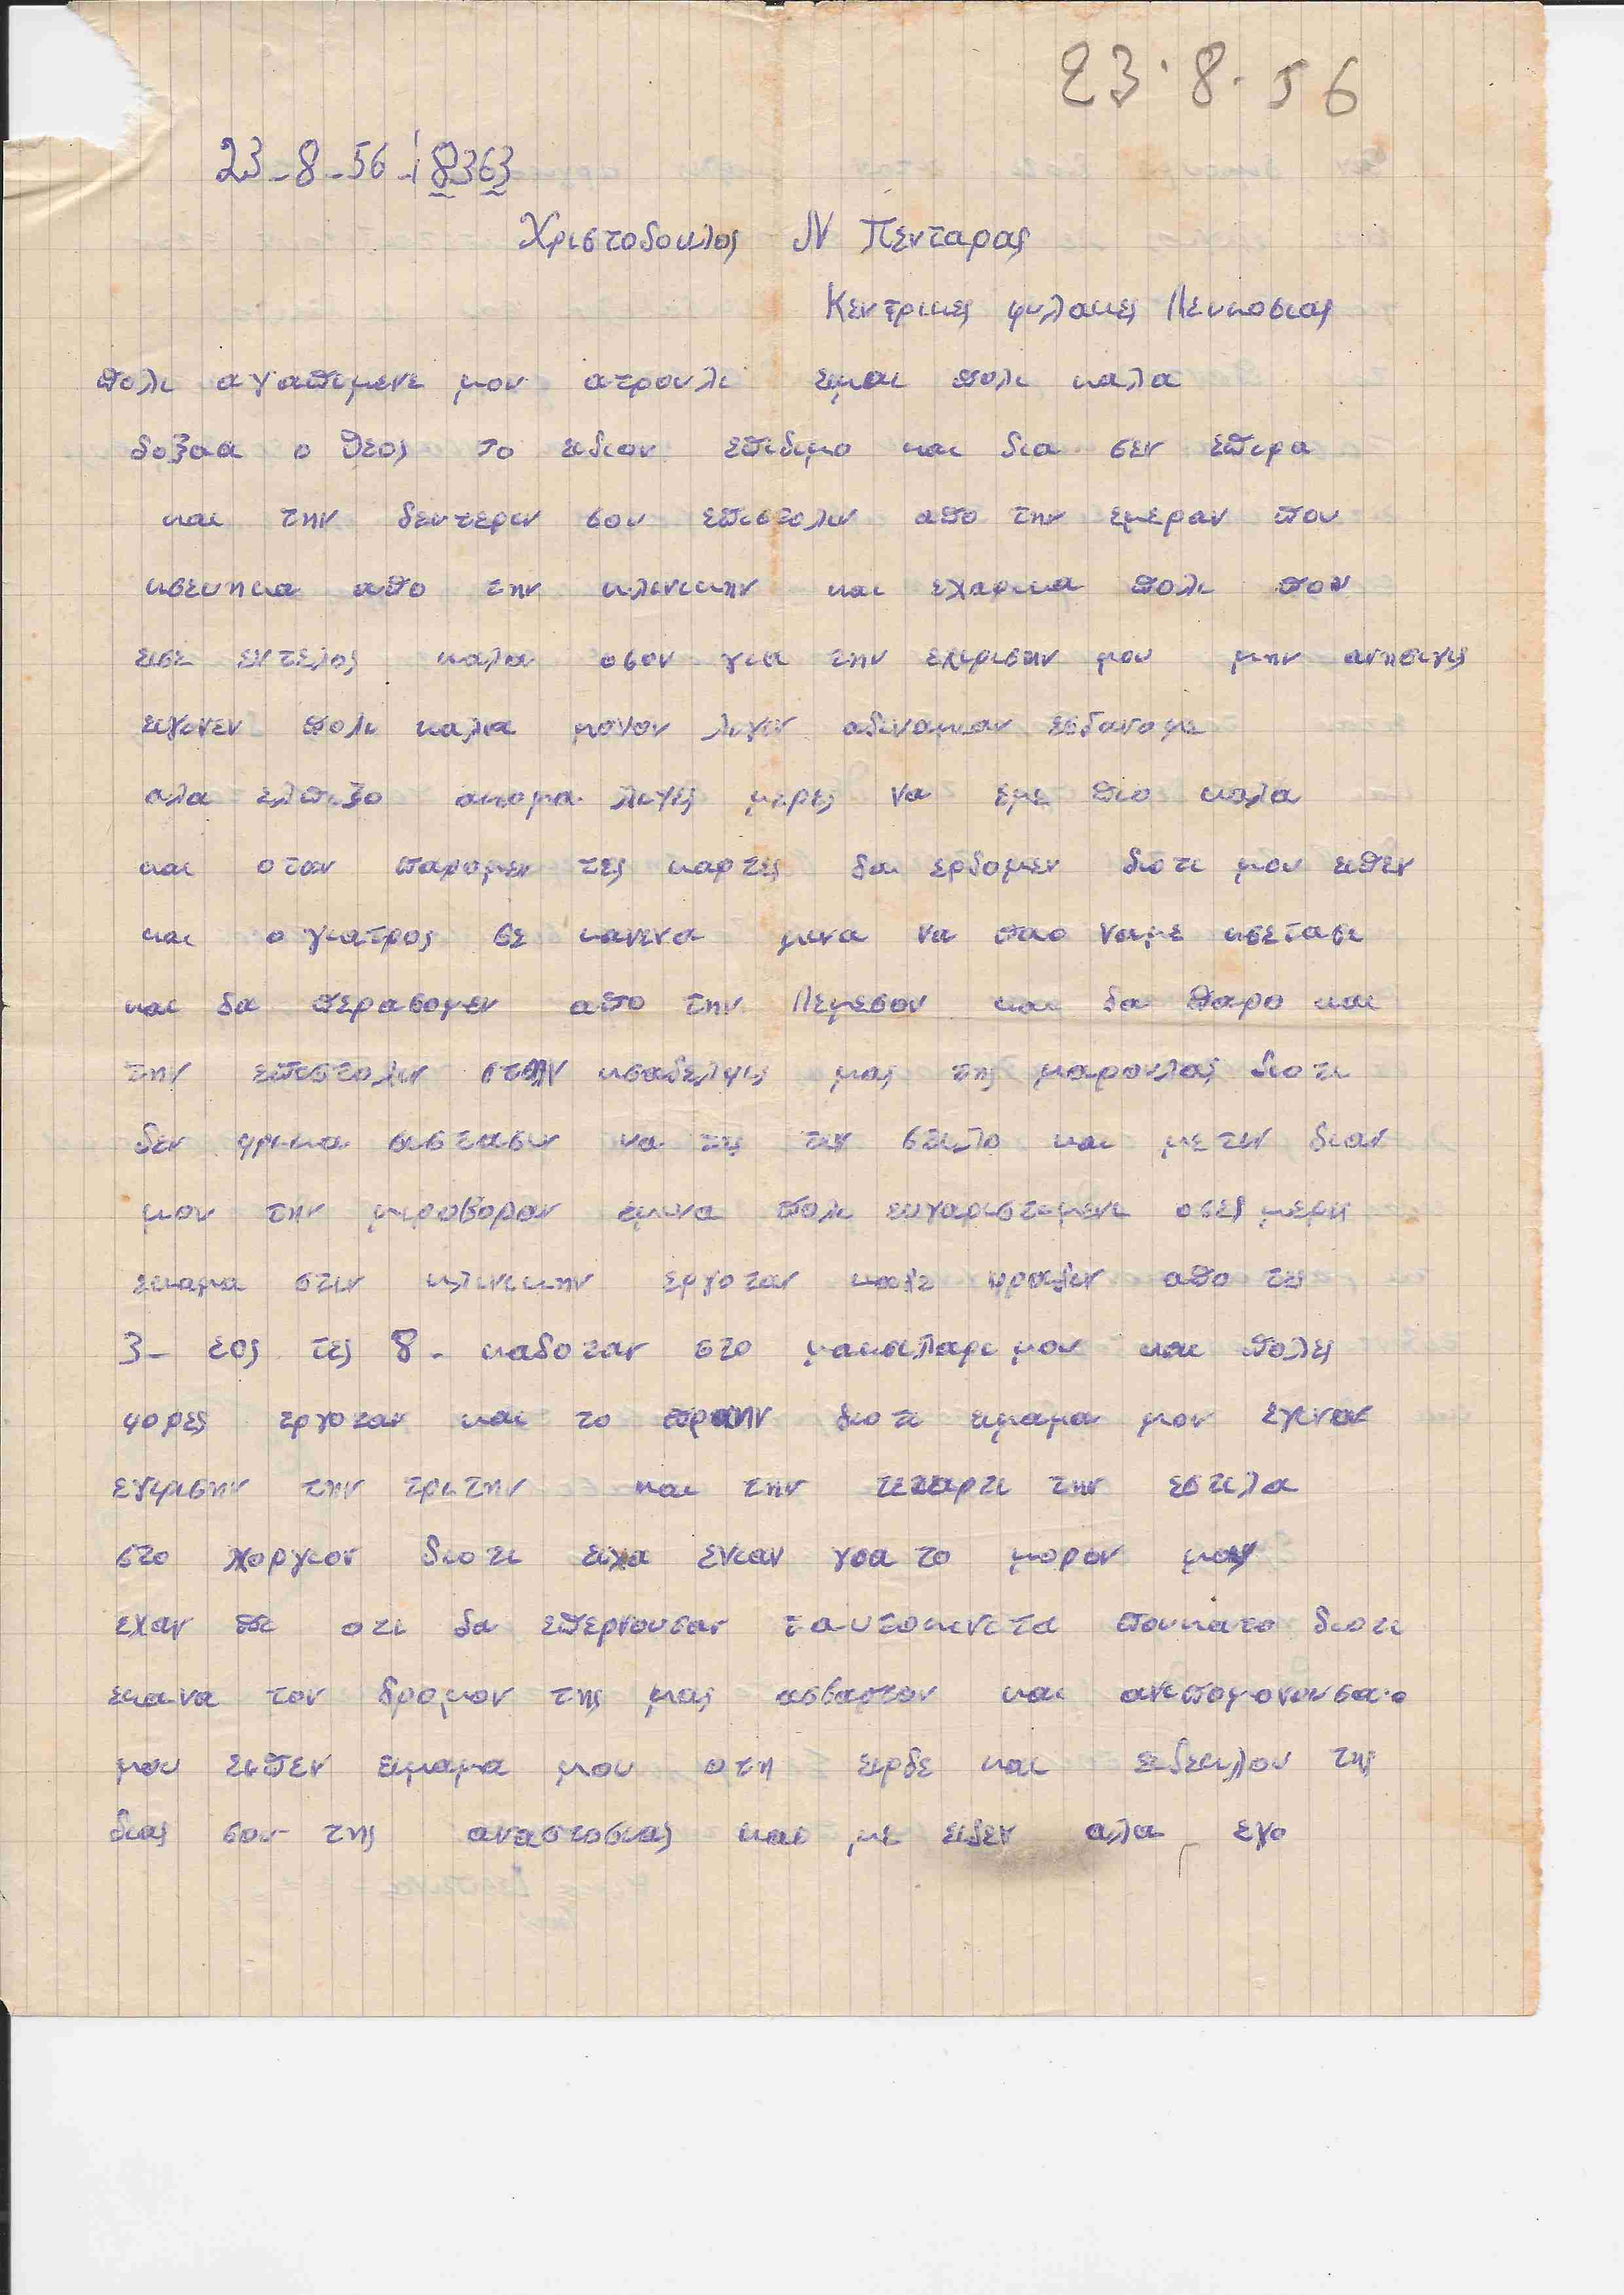 23·8·56
23-8-56-18363
Χριστοδουλος Ν Πενταρας
Κεντρικες φυλακες Λευκοσιας
πολι αγαπιμενε μου ατρουλι ειμαι πολι καλα
δοξαα ο θεος το ειδιον επιδιμο και δια σεν επιρα
και την δευτεριν σου επιστολιν απο την εμεραν που
κσευηκα απο την κλινικην και εχαρικα πολι που
εισε εντελος καλα οσον για την εχιρισην μου μην ανησιχις
εγινεν πολι καλια μονον λιγιν αδιναμιαν εσδανομε
αλα ελπιζο ακομα λιγες μερες να εμε πιο καλα
και οταν παρομεν τες καρτες δα ερδομεν διοτι μου ειπεν
και ο γιατρος σε κανενα μινα να παο ναμε κσετασι
και δα περασομεν απο την Λεμεσον και δα παρο και
την επιστολιν στην κσαδελφις μας της μαρουλας διοτι
δεν φρικα σιστασιν να της την στιλο και με τιν διαν
μου την μιροφοραν εμινα πολι ευχαριστιμενι οσες μερες
εκαμα στιν κλινικην εργοταν καδε βραδιν απο τες
3- εος τες 8- καδοταν στο μακσιλαρι μου και πολες
φορες εργοταν και το πραην διοτι ειμαμα μου εγιναν
εγιρισην την τριτην και την τεταρτι την εστιλα
στο χοργιον διοτι ειχα ενιαν για το μορον μου
εχαν πι οτι δα επερνουσαν ταυτοκινιτα πουκατο διοτι
εκανα τον δρομον της μας ασβαρτον και ανιπομονουσα·ο
μου ειπεν ειμαμα μου οτη ειρδε και ειδεκλου της
διας σου της αναστοσιας και με ειδεν αλα εγο